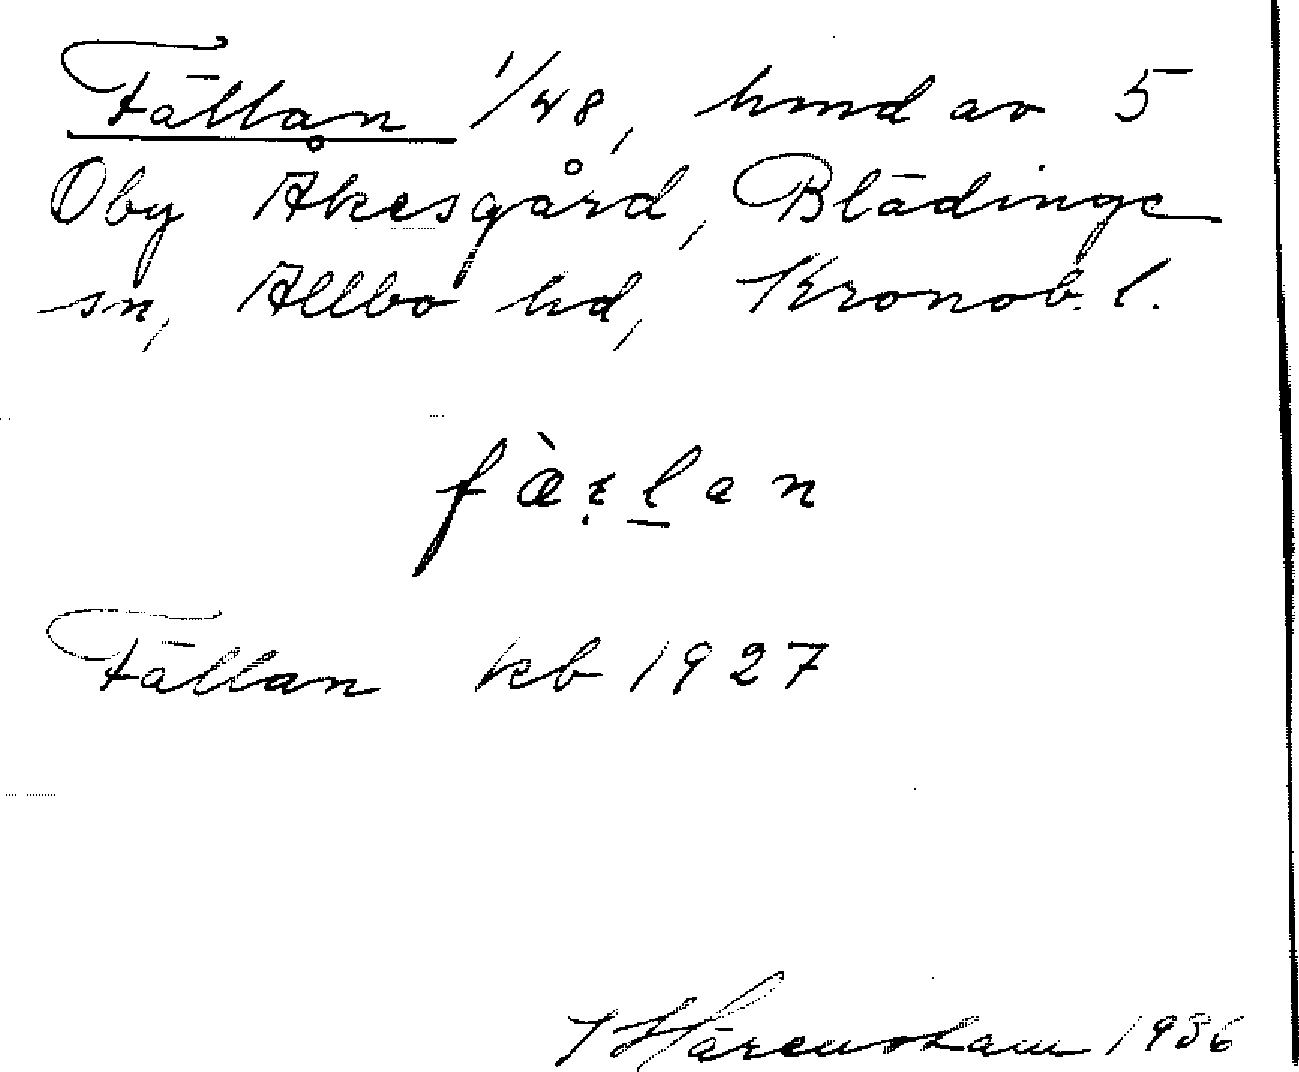 Fällan 1/48, hmd av 5
Oby Åkesgård, Blädinge
sn, Allbo hd, Kronob. l.
fæ̀ṛḻan
Fällan kb 1927
1986